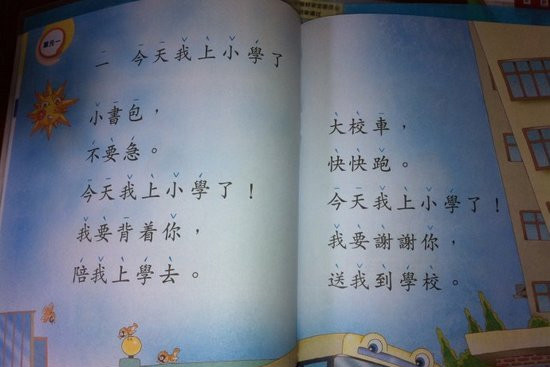 單元一
二 今天我上小學了
小書包，
不要急。
今天我上小學了！
我要背着你，
陪我上學去。
大校車，
快快跑。
今天我上小學了！
我要謝謝你，
送我到學校。